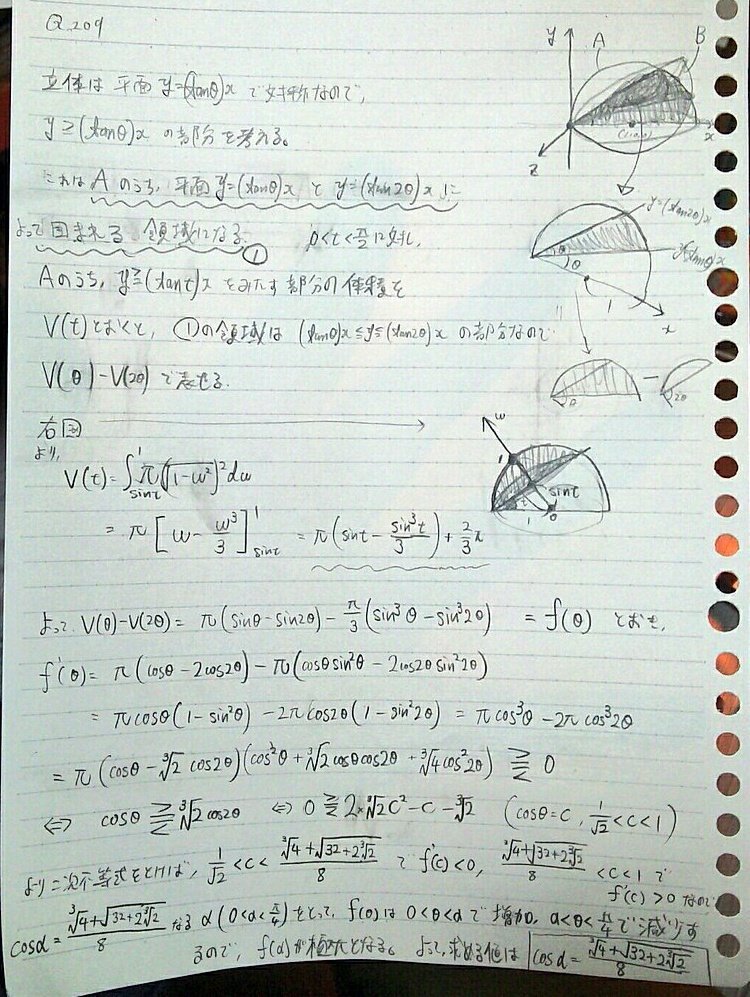 Q.209
立体は 平面 y=(tanθ)x で対称なので,
y≥(tanθ)x の部分を考える。
これは A のうち, 平面 y=(tanθ)x と y=(tan2θ)x に
よって囲まれる 領域になる ① 0<t<π/2 に対し,
Aのうち, y≥(tant)x をみたす部分の体積を
V(t)とおくと, ①の領域は (tanθ)x≤y≤(tan2θ)x の部分なので
V(θ)-V(2θ) で表せる.
y A B
x
z
y=(tan2θ)x
y=(tanθ)x
θ θ
1
x
θ - 2θ
右図 →
より,
w
1 sint
t 1 0
V(t)=∫_{sint}^{1} π(√(1-w²))²dw
= π[w-w³/3]_{sint}^{1} = π(sint-sin³t/3)+2/3π
よって V(θ)-V(2θ)= π(sinθ-sin2θ)-π/3(sin³θ-sin³2θ) = f(θ) とおき,
f'(θ)= π(cosθ-2cos2θ)-π(cosθsin²θ-2cos2θsin²2θ)
= πcosθ(1-sin²θ)-2πcos2θ(1-sin²2θ) = πcos³θ-2πcos³2θ
= π(cosθ-∛2 cos2θ)(cos²θ+∛2cosθcos2θ+∛4cos²2θ) ⋛ 0
⇔ cosθ ⋛ ∛2cos2θ ⇔ 0 ⋛ 2×∛2C²-C-∛2 (cosθ=C, 1/√2<C<1)
より二次不等式をとけば, 1/√2<C<(∛4+√(32+2∛2))/8 で f'(c)<0, (∛4+√(32+2∛2))/8<C<1 で
f'(c)>0 なので
cosα=(∛4+√(32+2∛2))/8 なる α(0<α<π/4)をとって, f(θ)は 0<θ<αで増加, α<θ<π/4で減少す
るので, f(α)が極大となる。よって,求める値は cosα=(∛4+√(32+2∛2))/8